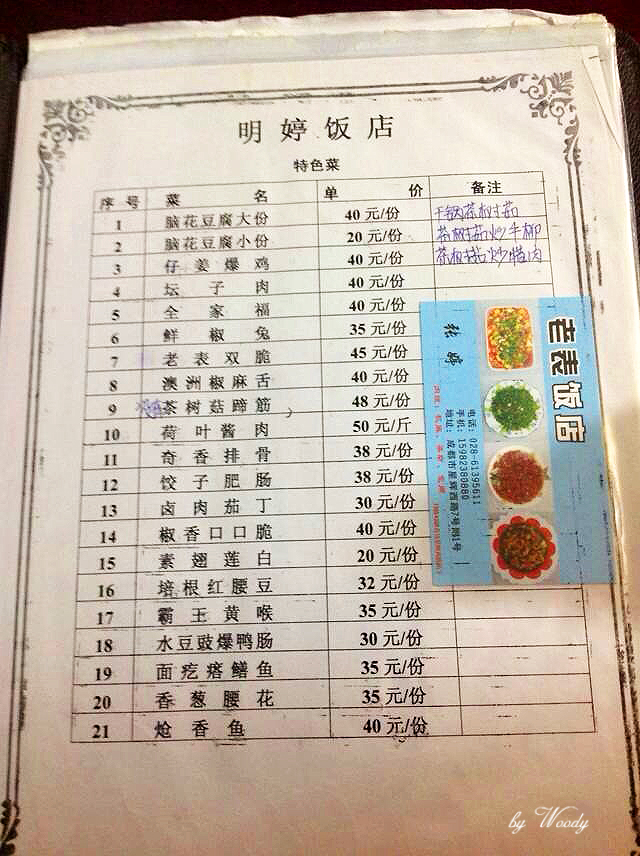 明婷饭店
特色菜
序号 菜名 单价 备注
1 脑花豆腐大份 40 元/份 干锅茶树菇
2 脑花豆腐小份 20 元/份 茶树菇炒牛柳
3 仔姜爆鸡 40 元/份 茶树菇炒腊肉
4 坛子肉 40 元/份
5 全家福 40 元/份
6 鲜椒兔 35 元/份
7 老表双脆 45 元/份
8 澳洲椒麻舌 40 元/份
9 茶树菇蹄筋 48 元/份
10 荷叶酱肉 50 元/斤
11 奇香排骨 38 元/份
12 饺子肥肠 38 元/份
13 卤肉茄丁 30 元/份
14 椒香口口脆 40 元/份
15 素翅莲白 20 元/份
16 培根红腰豆 32 元/份
17 霸王黄喉 35 元/份
18 水豆豉爆鸭肠 30 元/份
19 面疙瘩鳝鱼 35 元/份
20 香葱腰花 35 元/份
21 炝香鱼 40 元/份
老表饭店
张婷
电话：028-61395611
手机：15982380880
地址：成都市星辉西路7号附1号
by Woody